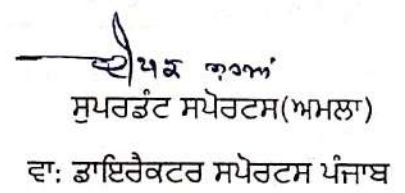 ਸੁਪਰਡੰਟ ਸਪੋਰਟਸ(ਅਮਲਾ)
ਵਾ: ਡਾਇਰੈਕਟਰ ਸਪੋਰਟਸ ਪੰਜਾਬ